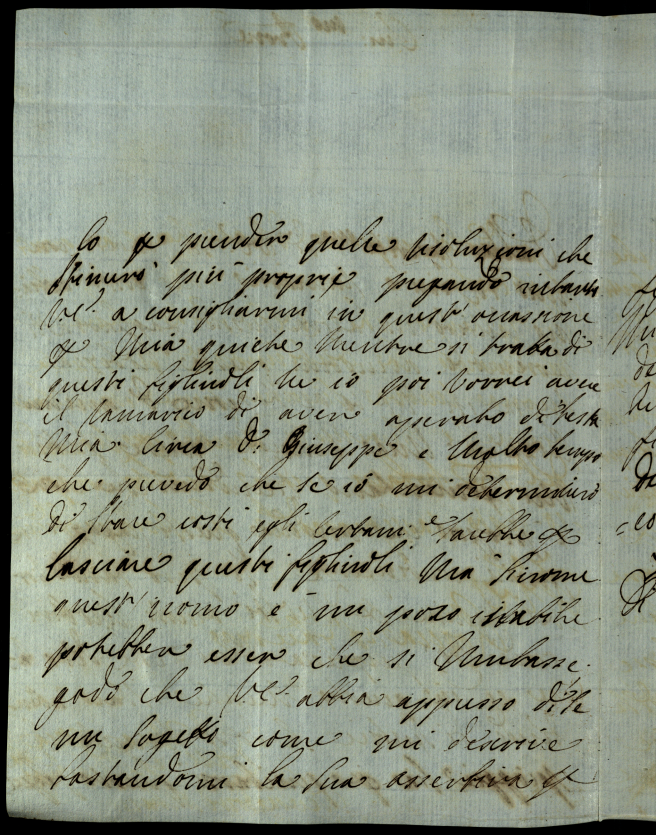 lo p prender quelle risoluzioni che
stimerò più proprie pregando intanto
V.S. a consigliarmi in quest' occasione
p mia quiete mentre si trata di
questi figliuoli ne io poi vorrei avere
il di aver operato di testa
mia circa D. Giuseppe è molto tempo
che prevedo che se io mi determinerò
di stare costi egli certam.e sarebbe p
lasciare questi figliuoli ma siccome
quest' uomo è un poco istabile
potrebber esser che si mutasse.
godo che V.S. abbia appresso di se
un sogetto come mi descrive
bastandomi la sua assertiva p